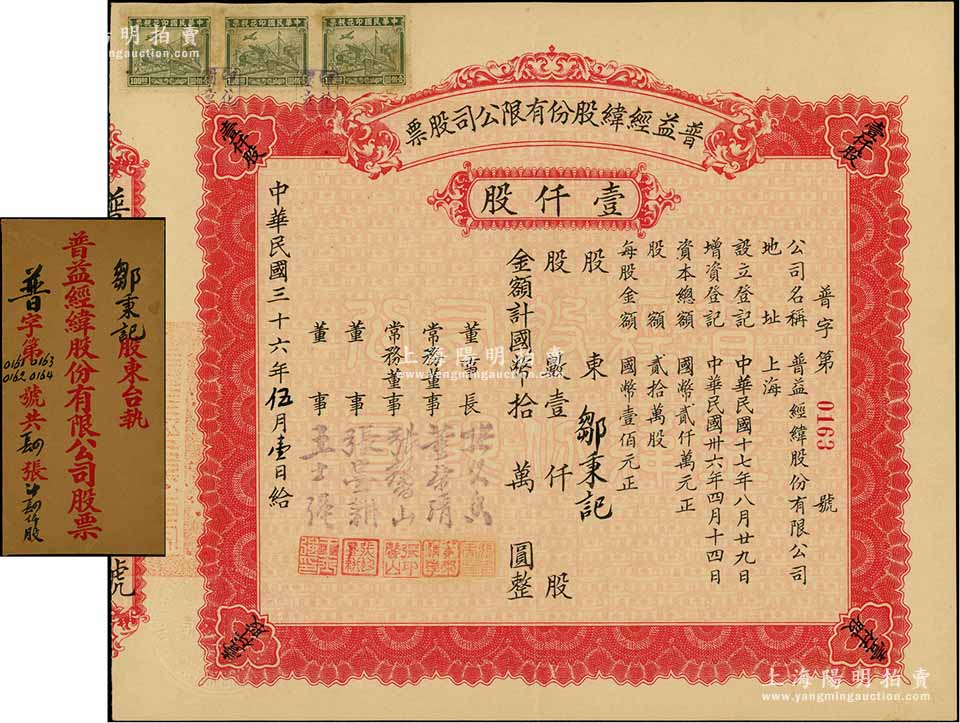 中華民國印花稅票
中華民國印花稅票
中華民國印花稅票
100圓
上海陽明拍賣
www.yangmingauction.com
普益經緯股份有限公司股票
壹仟股
壹仟股
壹仟股
壹仟股
壹仟股
普字第0163號
公司名稱 普益經緯股份有限公司
地址 上海
設立登記 中華民國十七年八月廿九日
增資登記 中華民國卅六年四月十四日
資本總額 國幣貳仟萬元正
股額 貳拾萬股
每股金額 國幣壹佰元正
股東 鄒秉記
股數 壹仟股
金額計國幣拾萬圓整
董事長
常務董事
常務董事
董事
董事 王士強
中華民國三十六年伍月壹日給
鄒秉記股東台執
普益經緯股份有限公司股票
普字第0161 0163 0162 0164號共肆張計肆仟股
普
號
上海陽明拍賣
www.yangmingauction.com
上海陽明拍賣
www.yangmingauction.com